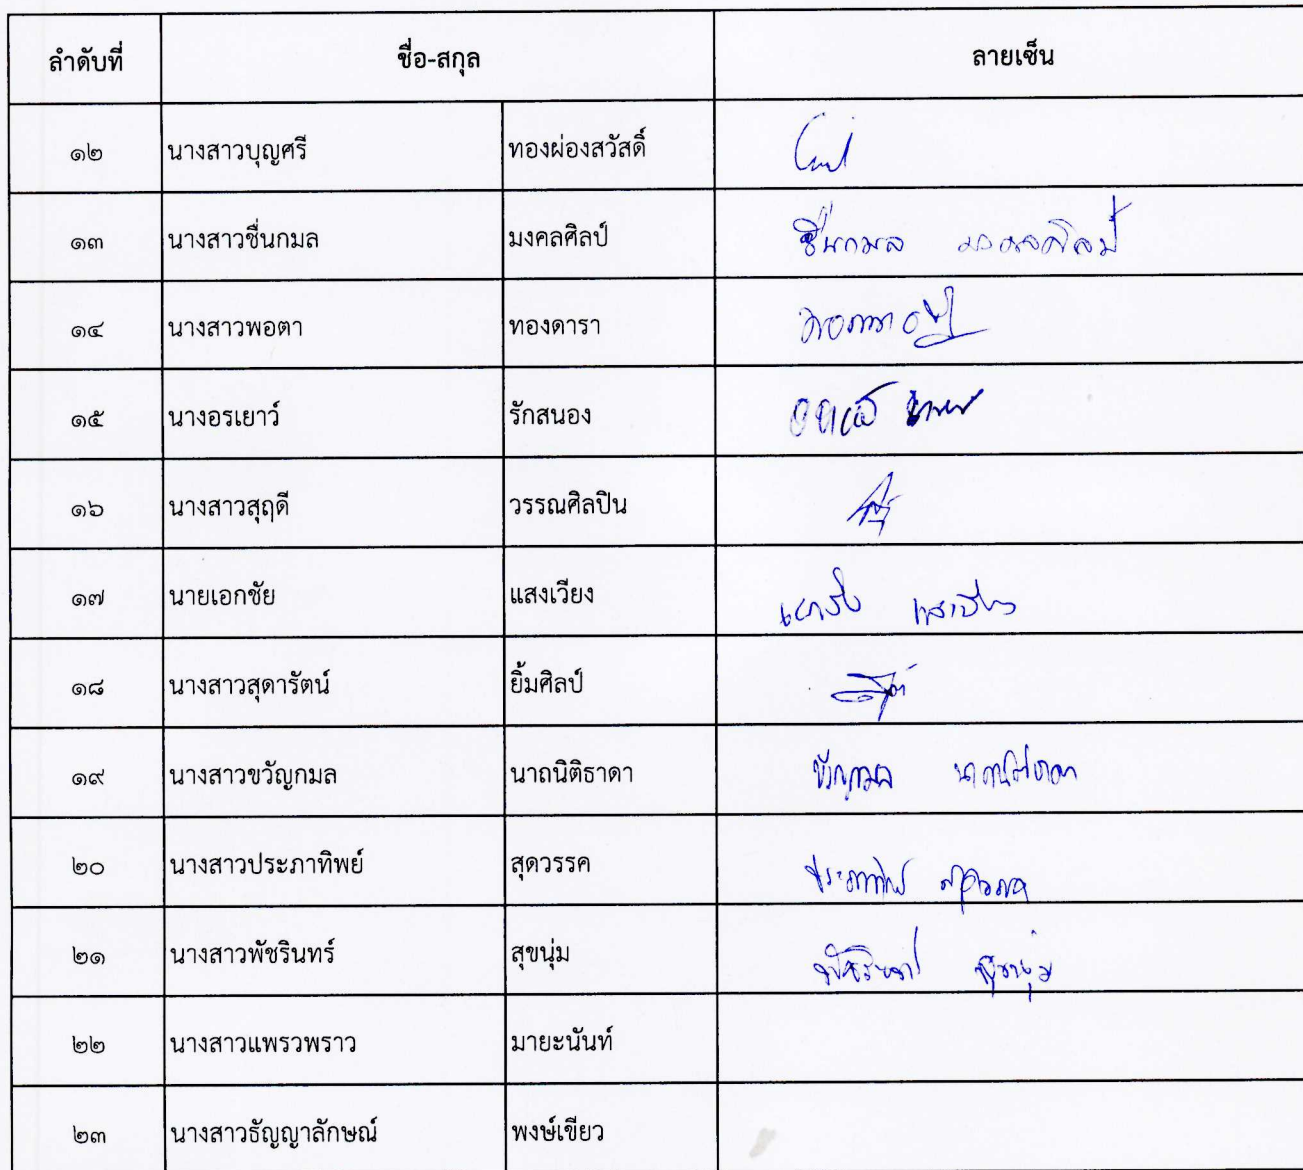 ลำดับที่ ชื่อ-สกุล ลายเซ็น
๑๒ นางสาวบุญศรี ทองผ่องสวัสดิ์
๑๓ นางสาวชื่นกมล มงคลศิลป์ ชื่นกมล มงคลศิลป์
๑๔ นางสาวพอตา ทองดารา
๑๕ นางอรเยาว์ รักสนอง
๑๖ นางสาวสุฤดี วรรณศิลปิน
๑๗ นายเอกชัย แสงเวียง เอกชัย แสงเวียง
๑๘ นางสาวสุดารัตน์ ยิ้มศิลป์
๑๙ นางสาวขวัญกมล นาถนิติธาดา ขวัญกมล นาถนิติธาดา
๒๐ นางสาวประภาทิพย์ สุดวรรค ประภาทิพย์ สุดวรรค
๒๑ นางสาวพัชรินทร์ สุขนุ่ม พัชรินทร์ สุขนุ่ม
๒๒ นางสาวแพรวพราว มายะนันท์
๒๓ นางสาวธัญญาลักษณ์ พงษ์เขียว